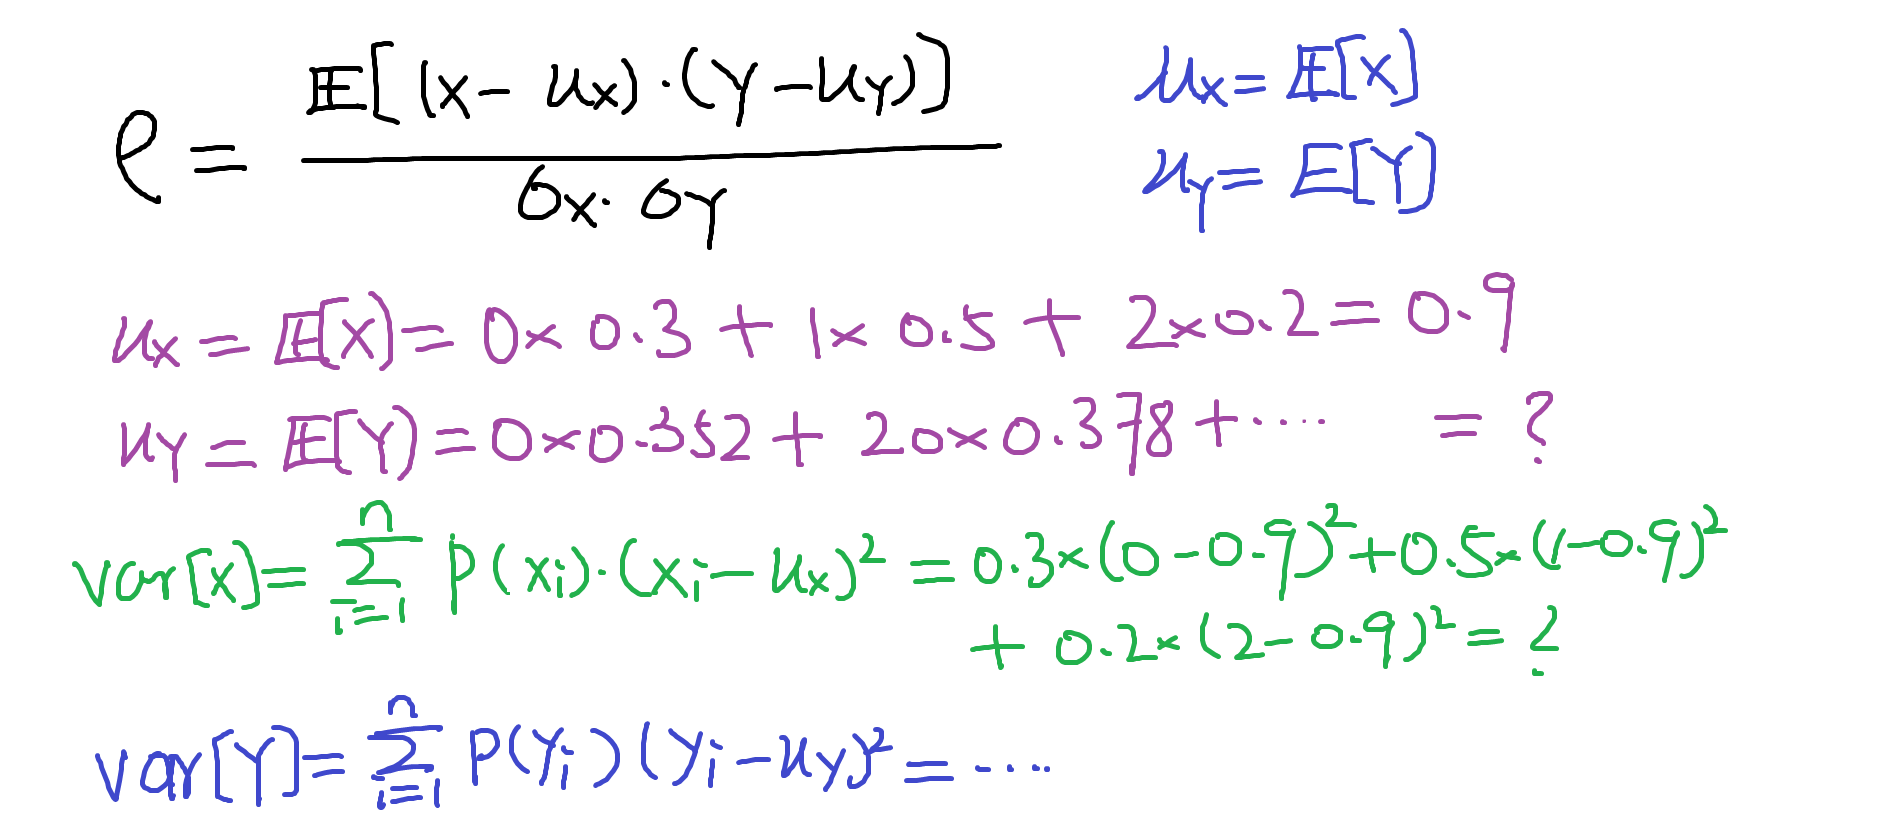 ρ = 𝔼[(X − μx)·(Y − μY)] / σx·σY
μx = 𝔼[X]
μY = E[Y]
μx = 𝔼[X] = 0 × 0.3 + 1 × 0.5 + 2 × 0.2 = 0.9
μY = 𝔼[Y] = 0 × 0.352 + 20 × 0.378 + ····· = ?
var[X] = ∑ⁿᵢ₌₁ P(xᵢ)·(xᵢ − μx)² = 0.3 × (0 − 0.9)² + 0.5 × (1 − 0.9)²
+ 0.2 × (2 − 0.9)² = ?
var[Y] = ∑ⁿᵢ₌₁ P(Yᵢ)(Yᵢ − μY)² = ····